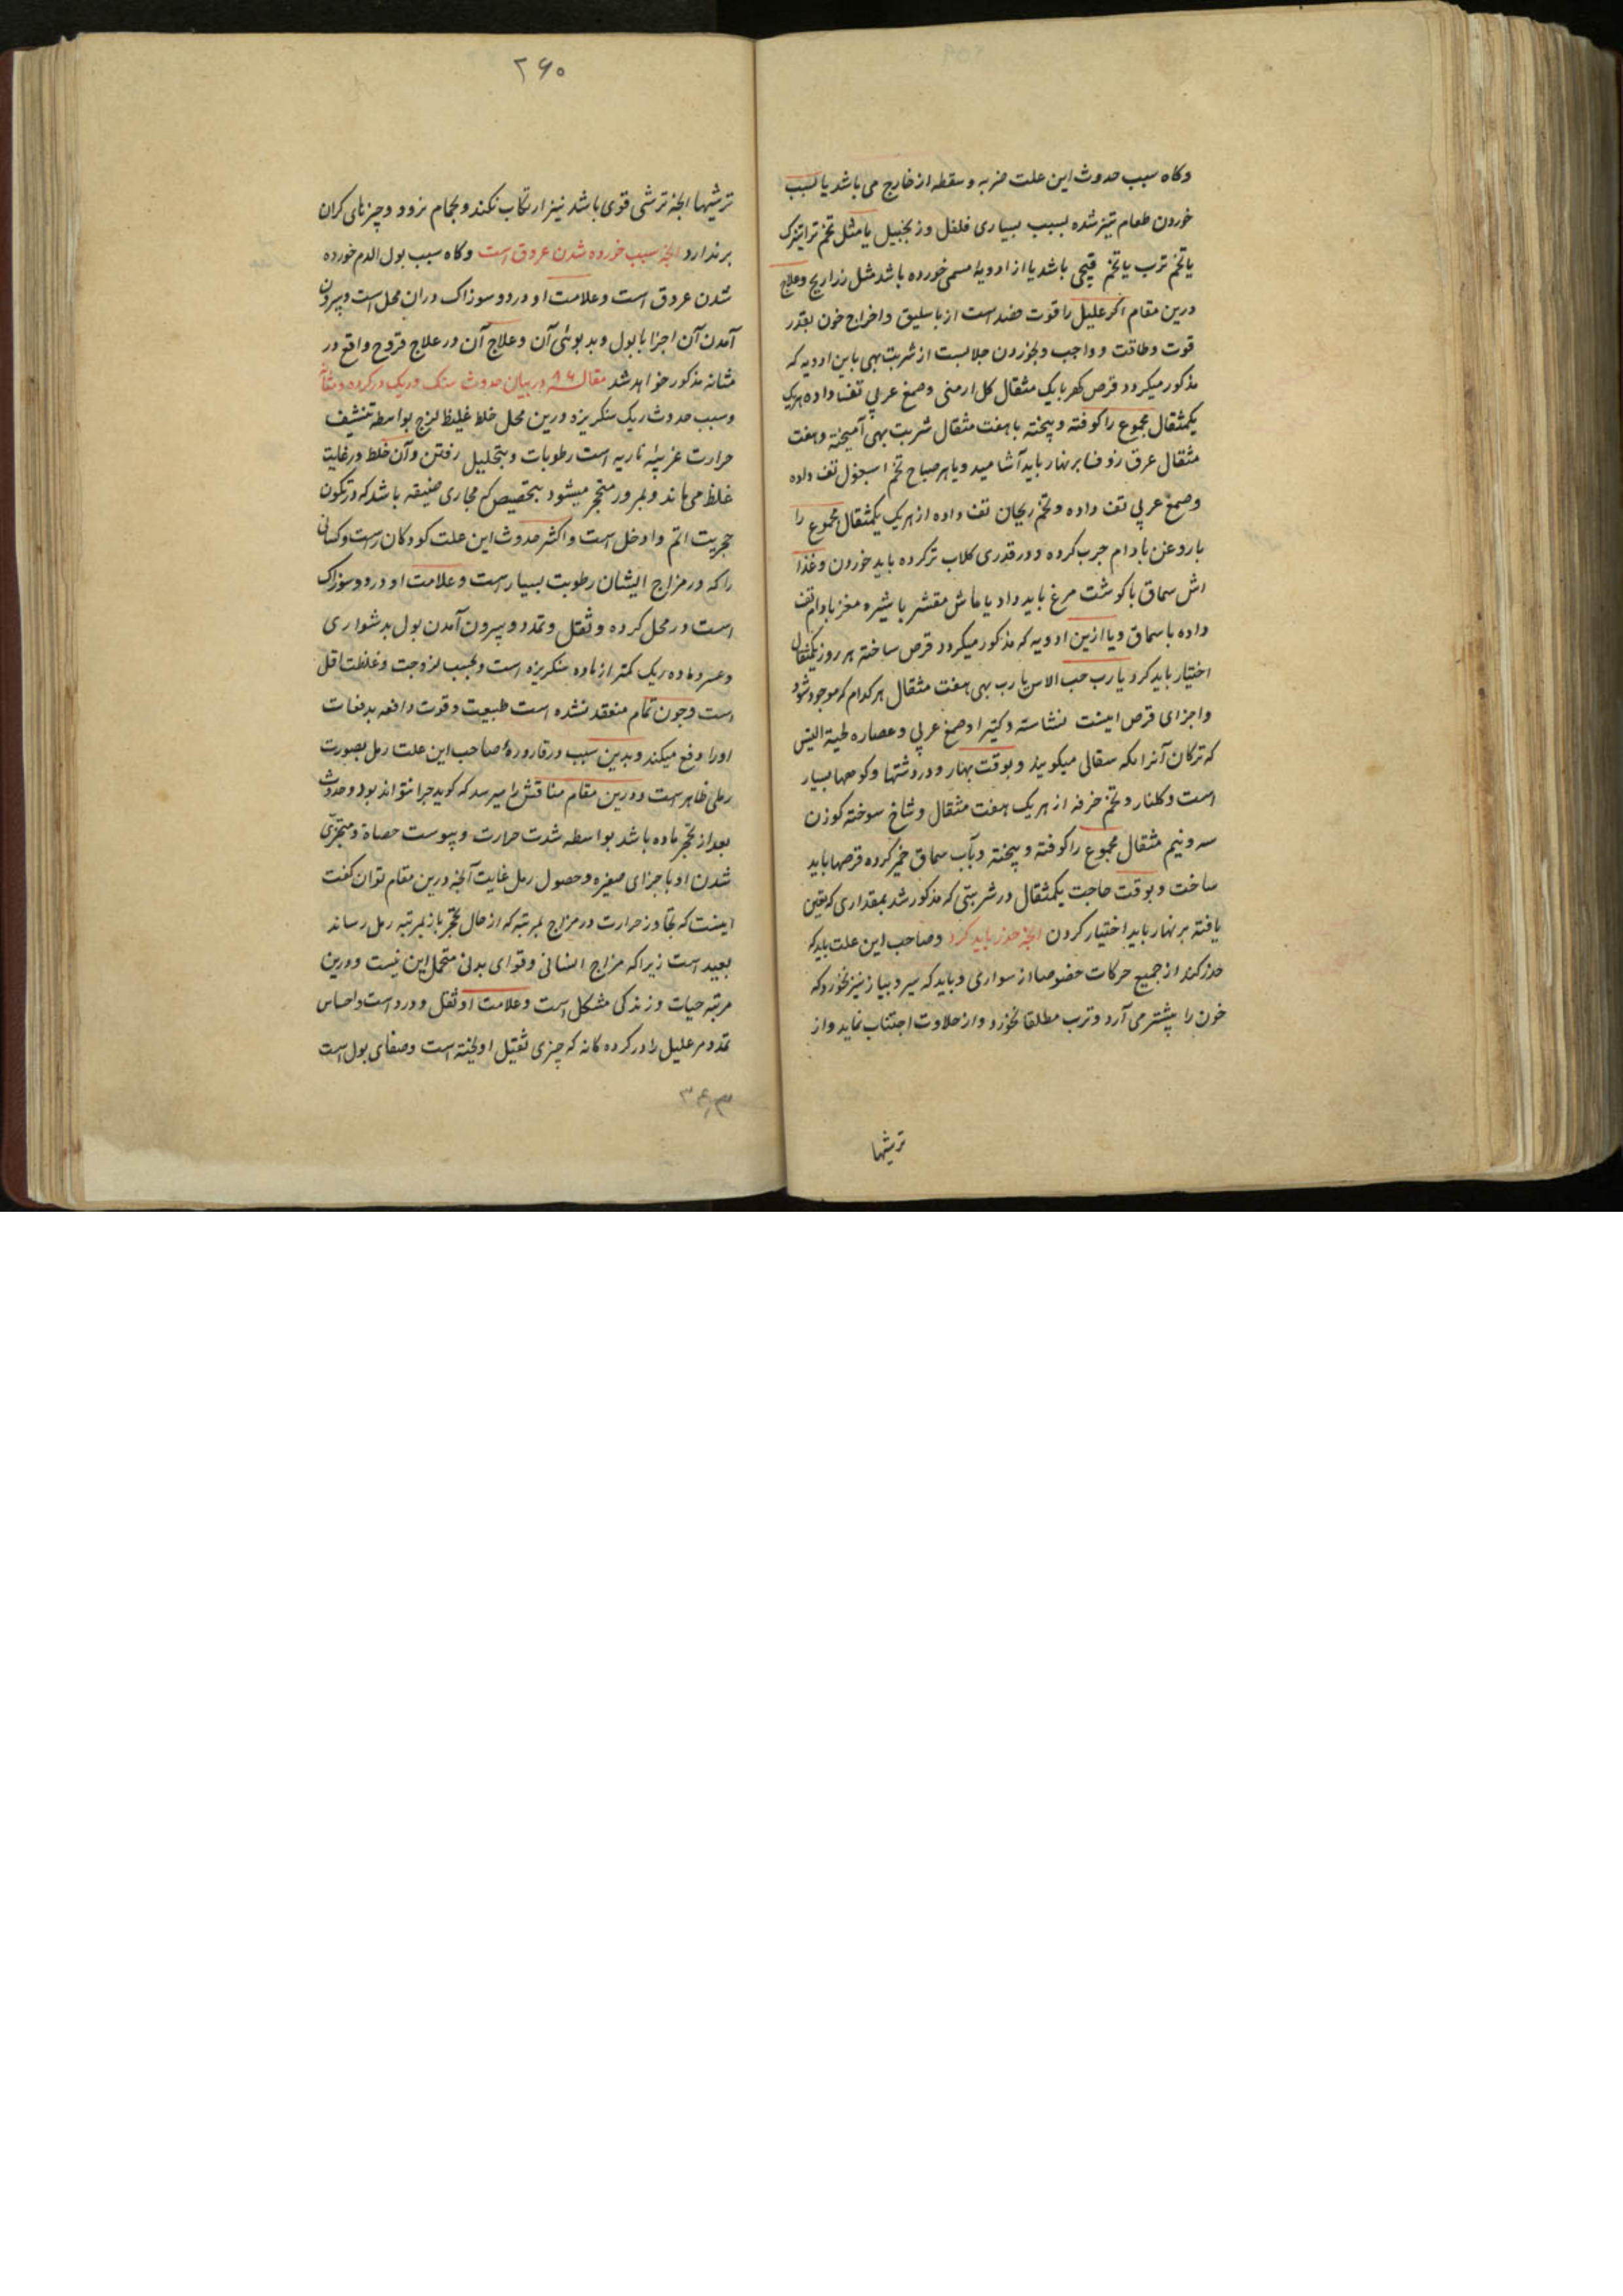 وکاه سبب حدوث این علت ضربه و سقطه از خارج می باشد یا بسبب
خوردن طعام تیز شده بسبب بسیاری فلفل و زنجبیل یا مثل تخم تراتیزک
یا تخم ترب یا تخم قیچی باشد یا از ادویهٔ مسمی خورده باشد مثل زراریح وعلاج
درین مقام اکر علیل را قوت فصد است از باسلیق و اخراج خون بقدر
قوت وطاقت و واجب و بخوردن جلابست از شربت بهی باین ادویه که
مذکور میکردد قرص کهربا یک مثقال کل ارمنی وصمغ عربی تفت داده هریک
یکمثقال مجموع را کوفته و پیخته با هفت مثقال شربت بهی آمیخته و هفت
مثقال عرق زوفا بر نهار باید آشامید و یا هر صباح تخم اسبغول تف داده
وصمغ عربی تف داده وتخم ریحان تف داده از هریک یکمثقال مجموع را
با روغن بادام چرب کرده و در قدری کلاب تر کرده باید خوردن وغذا
اش سماق با کوشت مرغ باید داد یا ماش مقشر با شیره مغز بادام تف
داده با سماق و یا ازین ادویه که مذکور میکردد قرص ساخته هر روز یکمثقال
اختیار باید کرد یا رب حب الاس یا رب بهی هفت مثقال هر کدام که موجود شود
واجزای قرص اینست نشاسته وکتیرا وصمغ عربی وعصاره لحیة التیس
که ترکان آنرا یکه سقالی میکویند و بوقت بهار و در دشتها وکوهها بسیار
است وکلنار وتخم خرفه از هریک هفت مثقال وشاخ سوخته کوزن
سه ونیم مثقال مجموع را کوفته و پیخته و بآب سماق خمیر کرده قرصها باید
ساخت و بوقت حاجت یکمثقال در شربتی که مذکور شد بمقداری که تعین
یافته بر نهار باید اختیار کردن انچه حذر باید کرد وصاحب این علت باید که
حذر کند از جمیع حرکات خصوصا از سواری و باید که سیر و پیاز نیز نخورد که
خون را بیشتر می آرد و ترب مطلقا نخورد و از حلاوت اجتناب نماید و از
ترشیها
۲۶۰
ترشیها انچه ترشی قوی باشد نیز ارتکاب نکند و بحمام نرود و چیزهای کران
بر ندارد انچه سبب خورده شدن عروق است وکاه سبب بول الدم خورده
شدن عروق است وعلامت او درد و سوزاک دران محل است و بیرون
آمدن آن اجزا با بول و بدبوئی آن وعلاج آن در علاج قروح واقع در
مثانه مذکور خواهد شد مقاله ۸۶ در بیان حدوث سنک و ریک در کرده و مثانه
وسبب حدوث ریک سنکریزه درین محل خلط غلیظ لزج بواسطه تنشیف
حرارت غریبهٔ ناریه است رطوبات و بتحلیل رفتن وآن خلط در غایت
غلظ می ماند و بمرور متحجر میشود بتخصیص که مجاری ضیقه باشد که در تکون
حجریت اتم وادخل است و اکثر حدوث این علت کودکان راست وکسانی
را که در مزاج ایشان رطوبت بسیار است وعلامت او درد و سوزاک
است در محل کرده وثقل وتمدد و بیرون آمدن بول بدشواری
وعسر و ماده ریک کمتر از ماده سنکریزه است و بحسب لزوجت وغلظت اقل
است و چون تمام منعقد نشده است طبیعت وقوت دافعه بدفعات
اورا دفع میکند و بدین سبب در قارورهٔ صاحب این علت رمل بصورت
رملی ظاهر است و درین مقام مناقش را میرسد که کوید چرا نتواند بود وحدوث
بعد از تحجر ماده باشد بواسطه شدت حرارت ویبوست حصاة و متجزی
شدن او باجزای صغیره وحصول رمل غایت آنچه درین مقام توان کفت
اینست که تجاوز حرارت در مزاج بمرتبه که از حال تحجر باز بمرتبه رمل رساند
بعید است زیرا که مزاج انسانی وقوای بدنی متحمل این نیست و درین
مرتبه حیات وزندکی مشکل است وعلامت او ثقل و درد است و احساس
تمدد مر علیل را در کرده کانه که چیزی ثقیل اویخته است وصفای بول است